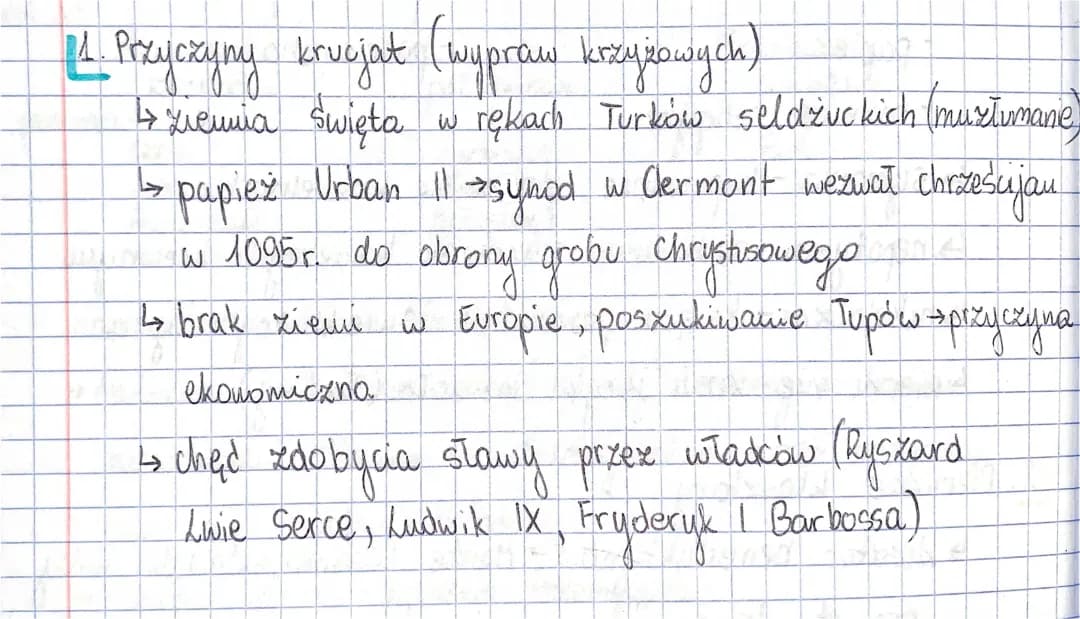 1. Przyczyny krucjat (wypraw krzyżowych)
↳ ziemia święta w rękach Turków seldżuckich (muzłumanie)
↳ papież Urban II → synod w Clermont wezwał chrześcijan
w 1095r. do obrony grobu Chrystusowego
↳ brak ziemi w Europie, poszukiwanie łupów → przyczyna
ekonomiczna
↳ chęć zdobycia sławy przez władców (Ryszard
Lwie Serce, Ludwik IX, Fryderyk I Barbossa)